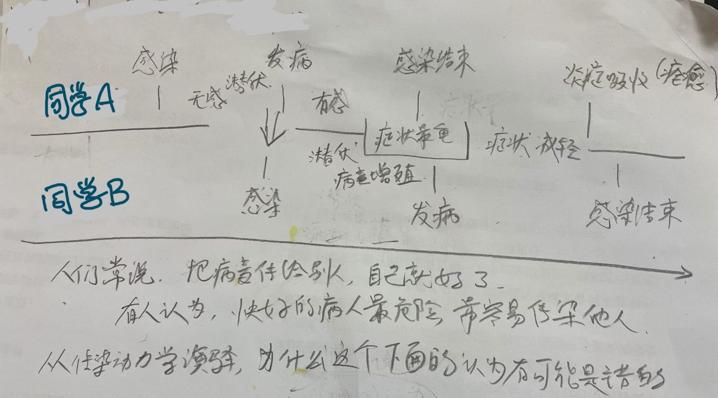 感染 发病 感染结束 炎症吸收(痊愈)
同学A 无感 潜伏 有感 症状最重 症状减轻
潜伏
病毒增殖
同学B 感染 发病 感染结束
人们常说. 把病毒传给别人, 自己就好了.
有人认为, 快好的病人最危险, 最容易传染他人.
从传染动力学演绎, 为什么这个下面的认为有可能是错的